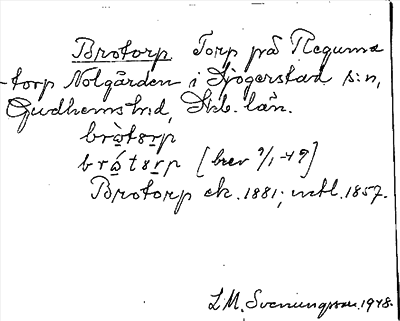 Brotorp Torp på Reguma
-torp Nolgården i Sjogerstad s:n,
Gudhems hd, Skb. län.
bròtɜrp
brǿtɜrp [brev 9/1 -49]
Brotorp ek. 1881; urtl. 1857.
L.M. Svenungsson. 1948.